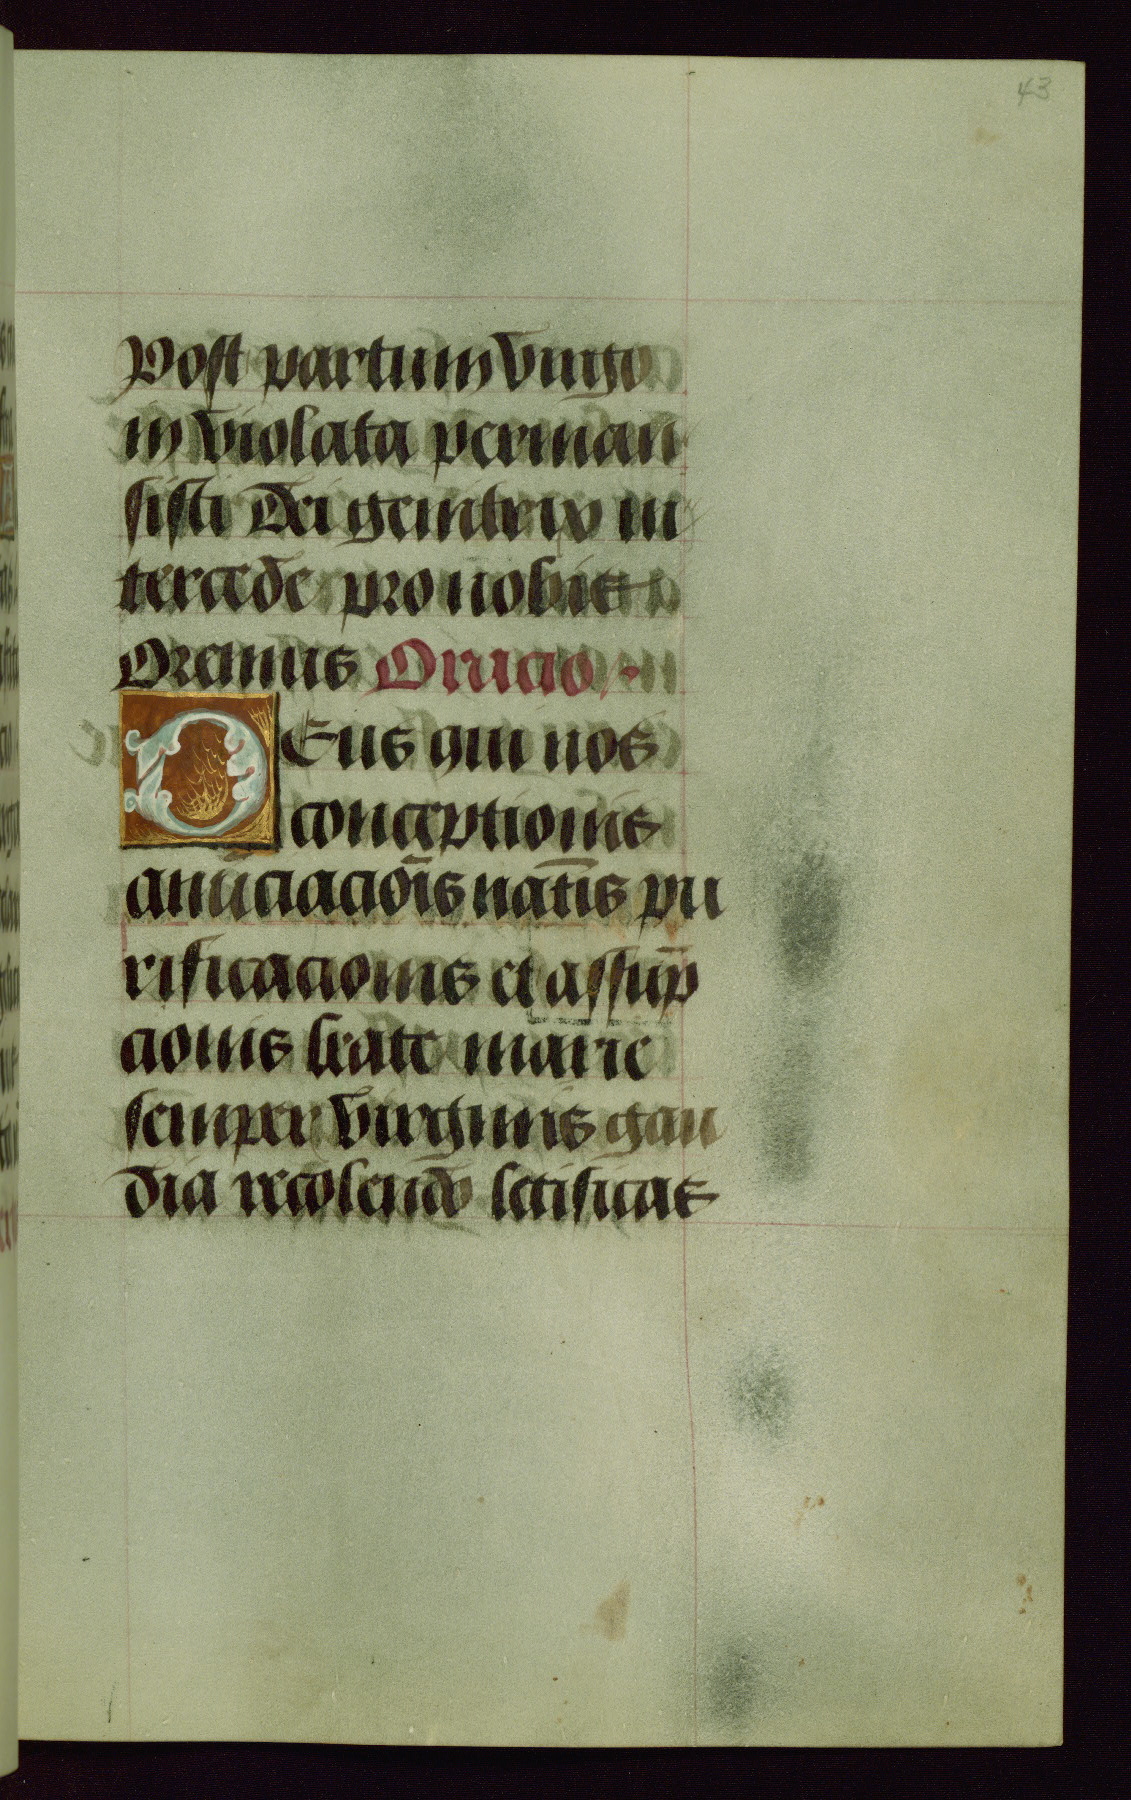 43
Post partum virgo
in violata perman
sisti dei genitrix in
tercede pro nobis
Oremus Oracio
Deus qui nos
conceptionis
anūciaciōis natīs pu
rificacionis et assūp
cionis beate marie
semper virginis gau
dia recolendo letificas